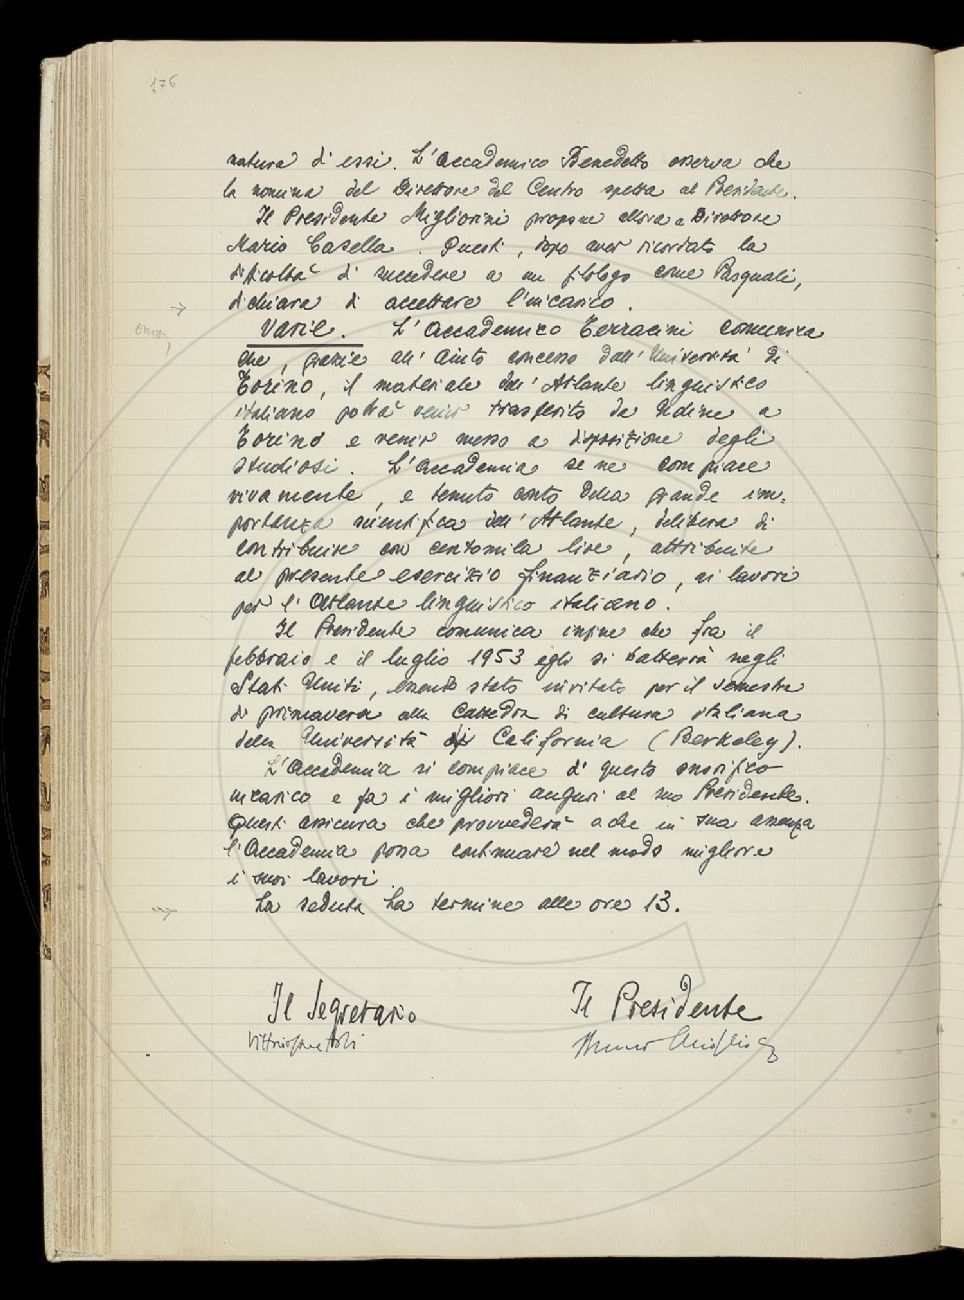 176
natura d'essi. L'Accademico Benedetto osserva che
la nomina del Direttore del Centro spetta al Presidente.
Il Presidente Migliorini propone allora a Direttore
Mario Casella. Questi, dopo aver ricordato la
difficoltà di succedere a un filologo come Pasquali,
dichiara di accettare l'incarico.
Varie. L'Accademico Terracini comunica
che, grazie all'aiuto concesso dall'Università di
Torino, il materiale dell'Atlante linguistico
italiano potrà venir trasferito da Udine a
Torino e venir messo a disposizione degli
studiosi. L'Accademia se ne compiace
vivamente, e tenuto conto della grande im-
portanza scientifica dell'Atlante, delibera di
contribuire con centomila lire, attribuite
al presente esercizio finanziario, ai lavori
per l'Atlante linguistico italiano.
Il Presidente comunica infine che fra il
febbraio e il luglio 1953 egli si tratterrà negli
Stati Uniti, essendo stato invitato per il semestre
di primavera alla Cattedra di cultura italiana
della Università di California (Berkeley).
L'Accademia si compiace di questo onorifico
incarico e fa i migliori auguri al suo Presidente.
Questi assicura che provvederà a che in sua assenza
l'Accademia possa continuare nel modo migliore
i suoi lavori.
La seduta ha termine alle ore 13.
Il Segretario Il Presidente
Bruno Migliorini